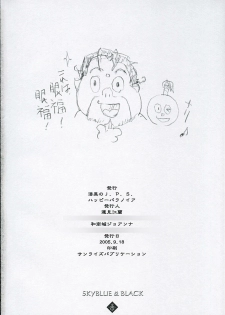 これは
眼福!
眼福!
発行
漆黒のJ.P.S.
ハッピーパラノイア
発行人
和泉城ジョアンナ
発行日
2005.9.18
印刷
サンライズパブリケーション
SKYBLUE & BLACK